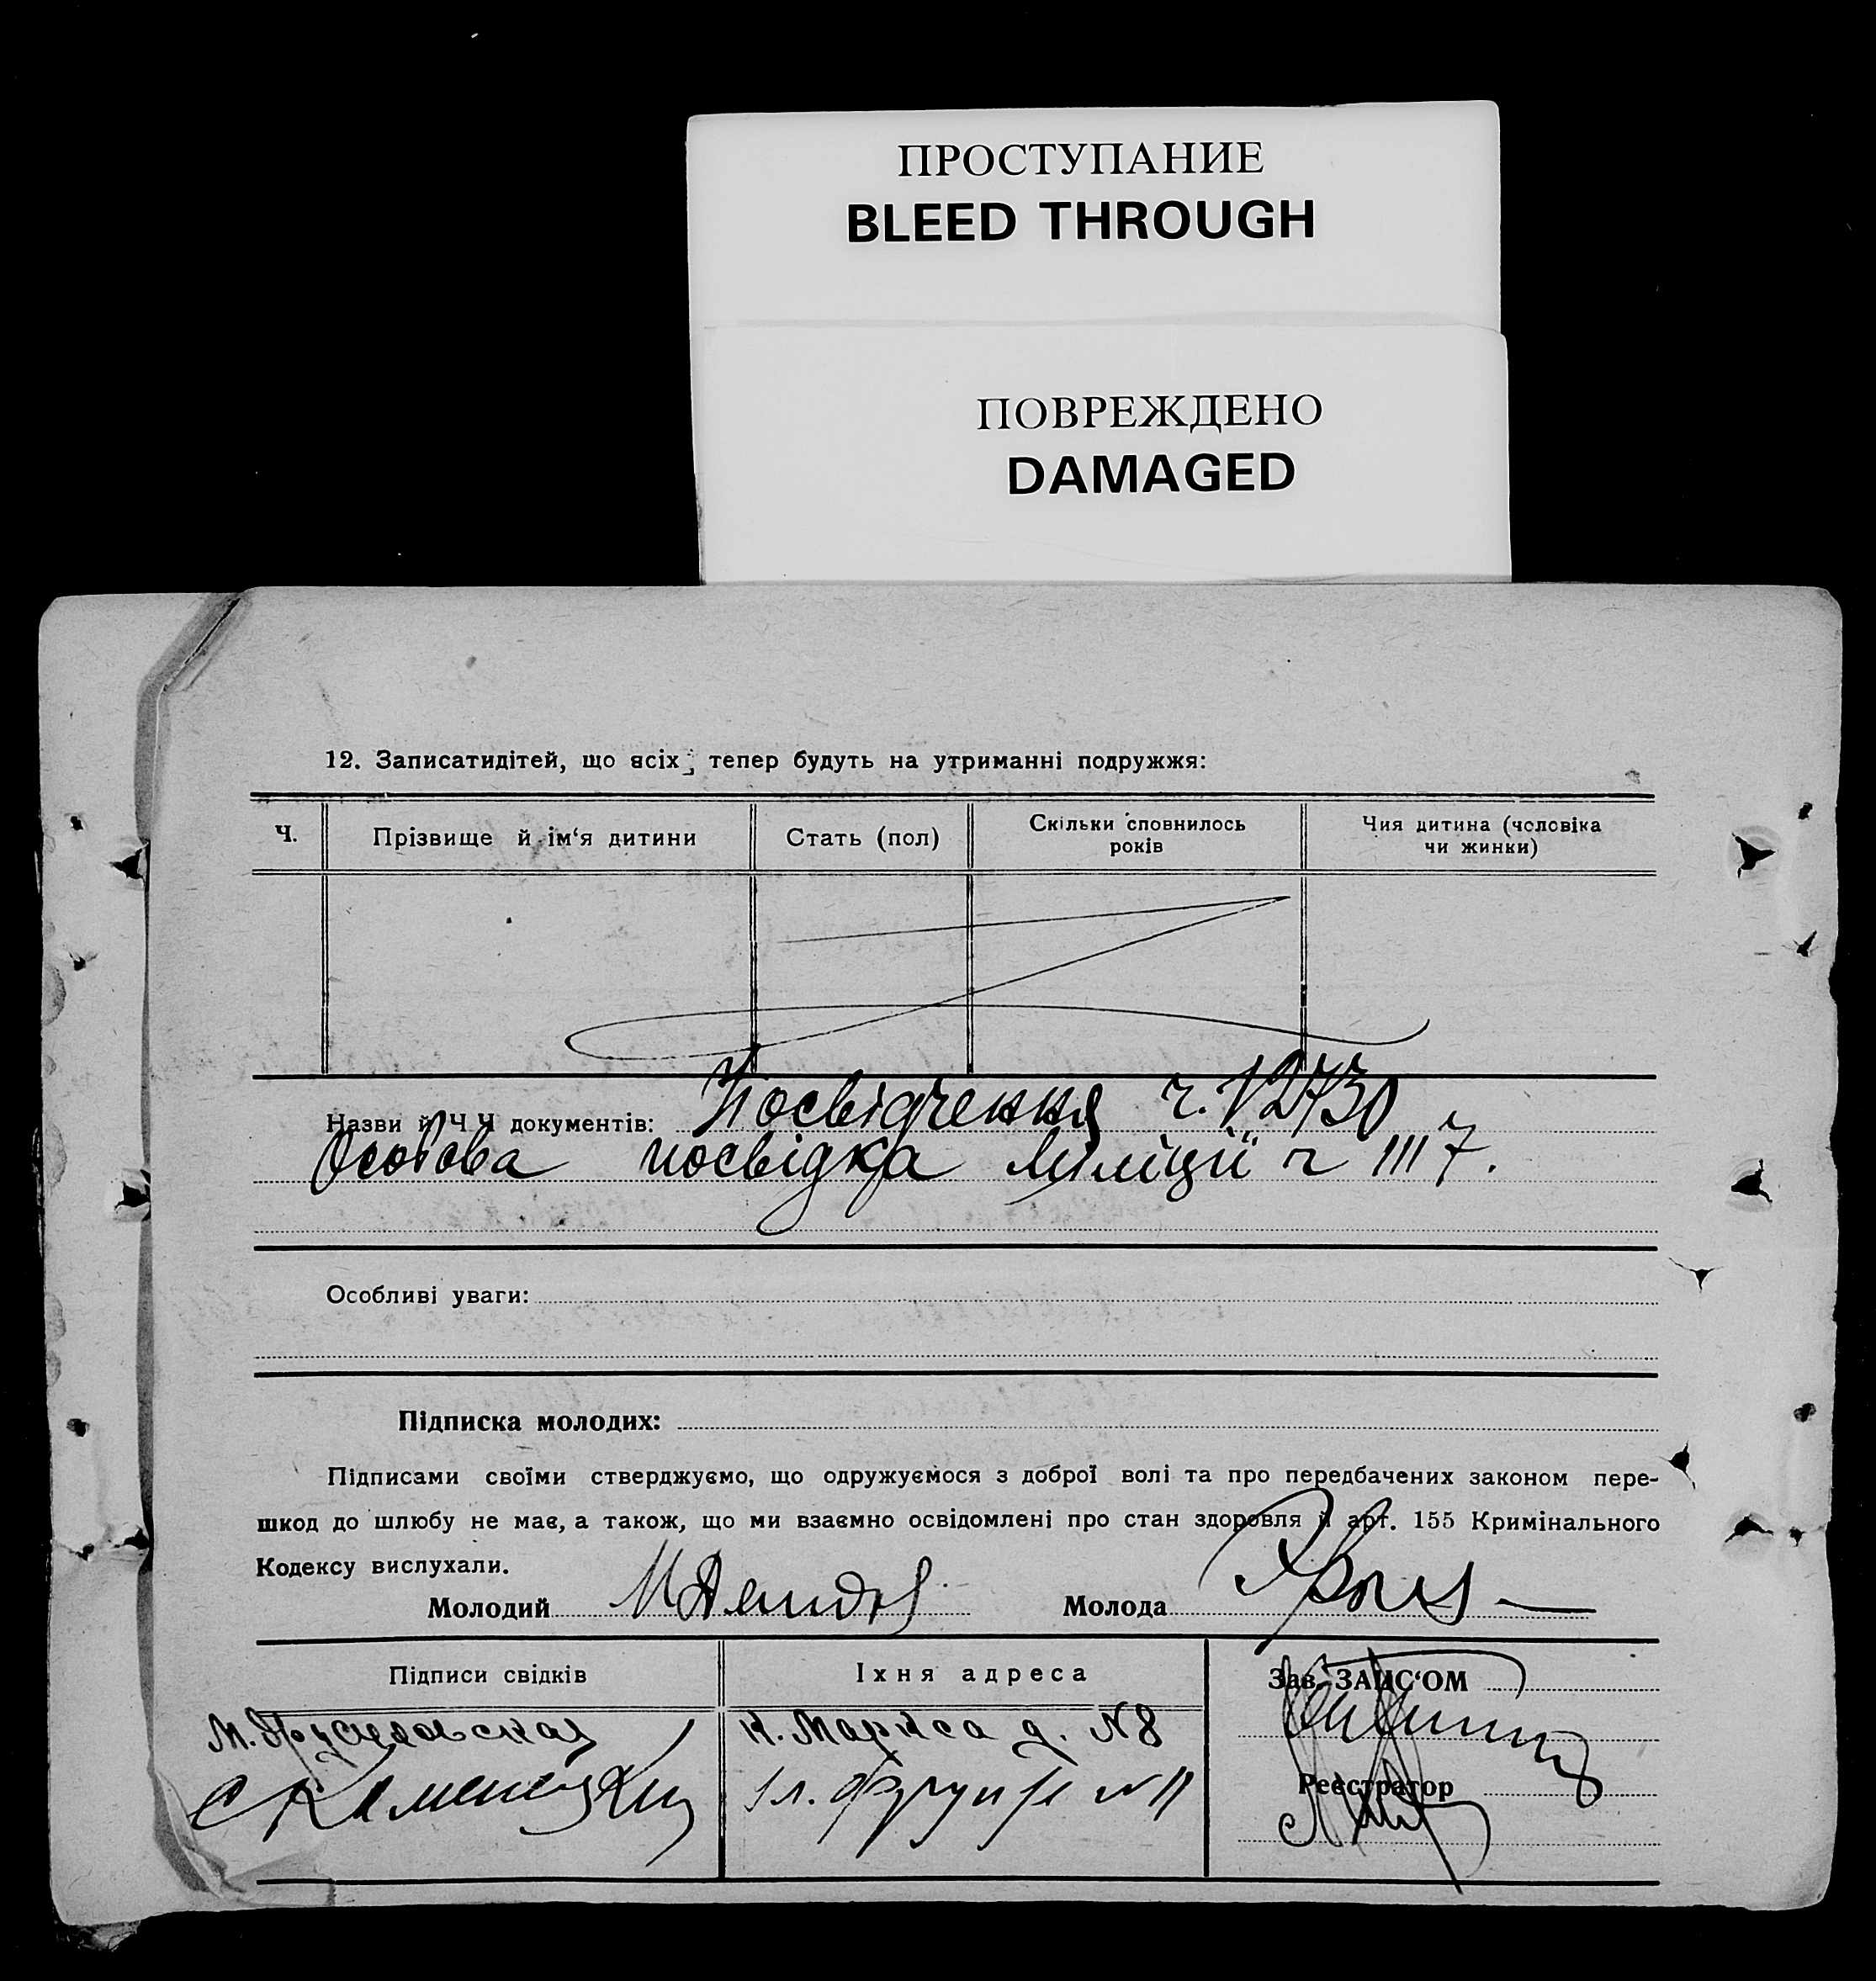 ПРОСТУПАНИЕ
BLEED THROUGH
ПОВРЕЖДЕНО
DAMAGED
12. Записатидітей, що всіх тепер будуть на утриманні подружжя:
Ч.
Прізвище й ім‘я дитини
Стать (пол)
Скільки сповнилось
років
Чия дитина (чоловіка
чи жинки)
Назви й Ч Ч документів: Посвідчення ч. 12730
Особова посвідка міліції ч 1117.
Особливі уваги:
Підписка молодих:
Підписами своїми стверджуємо, що одружуємося з доброї волі та про передбачених законом пере-
шкод до шлюбу не має, а також, що ми взаємно освідомлені про стан здоровля й арт. 155 Кримінального
Кодексу вислухали.
Молодий
Молода
Підписи свідків
Їхня адреса
Зав. ЗАГС‘ОМ
М.
К. Маркса д. №8
С Каменецкий
Ул. Фрунзе №11
Реєстратор